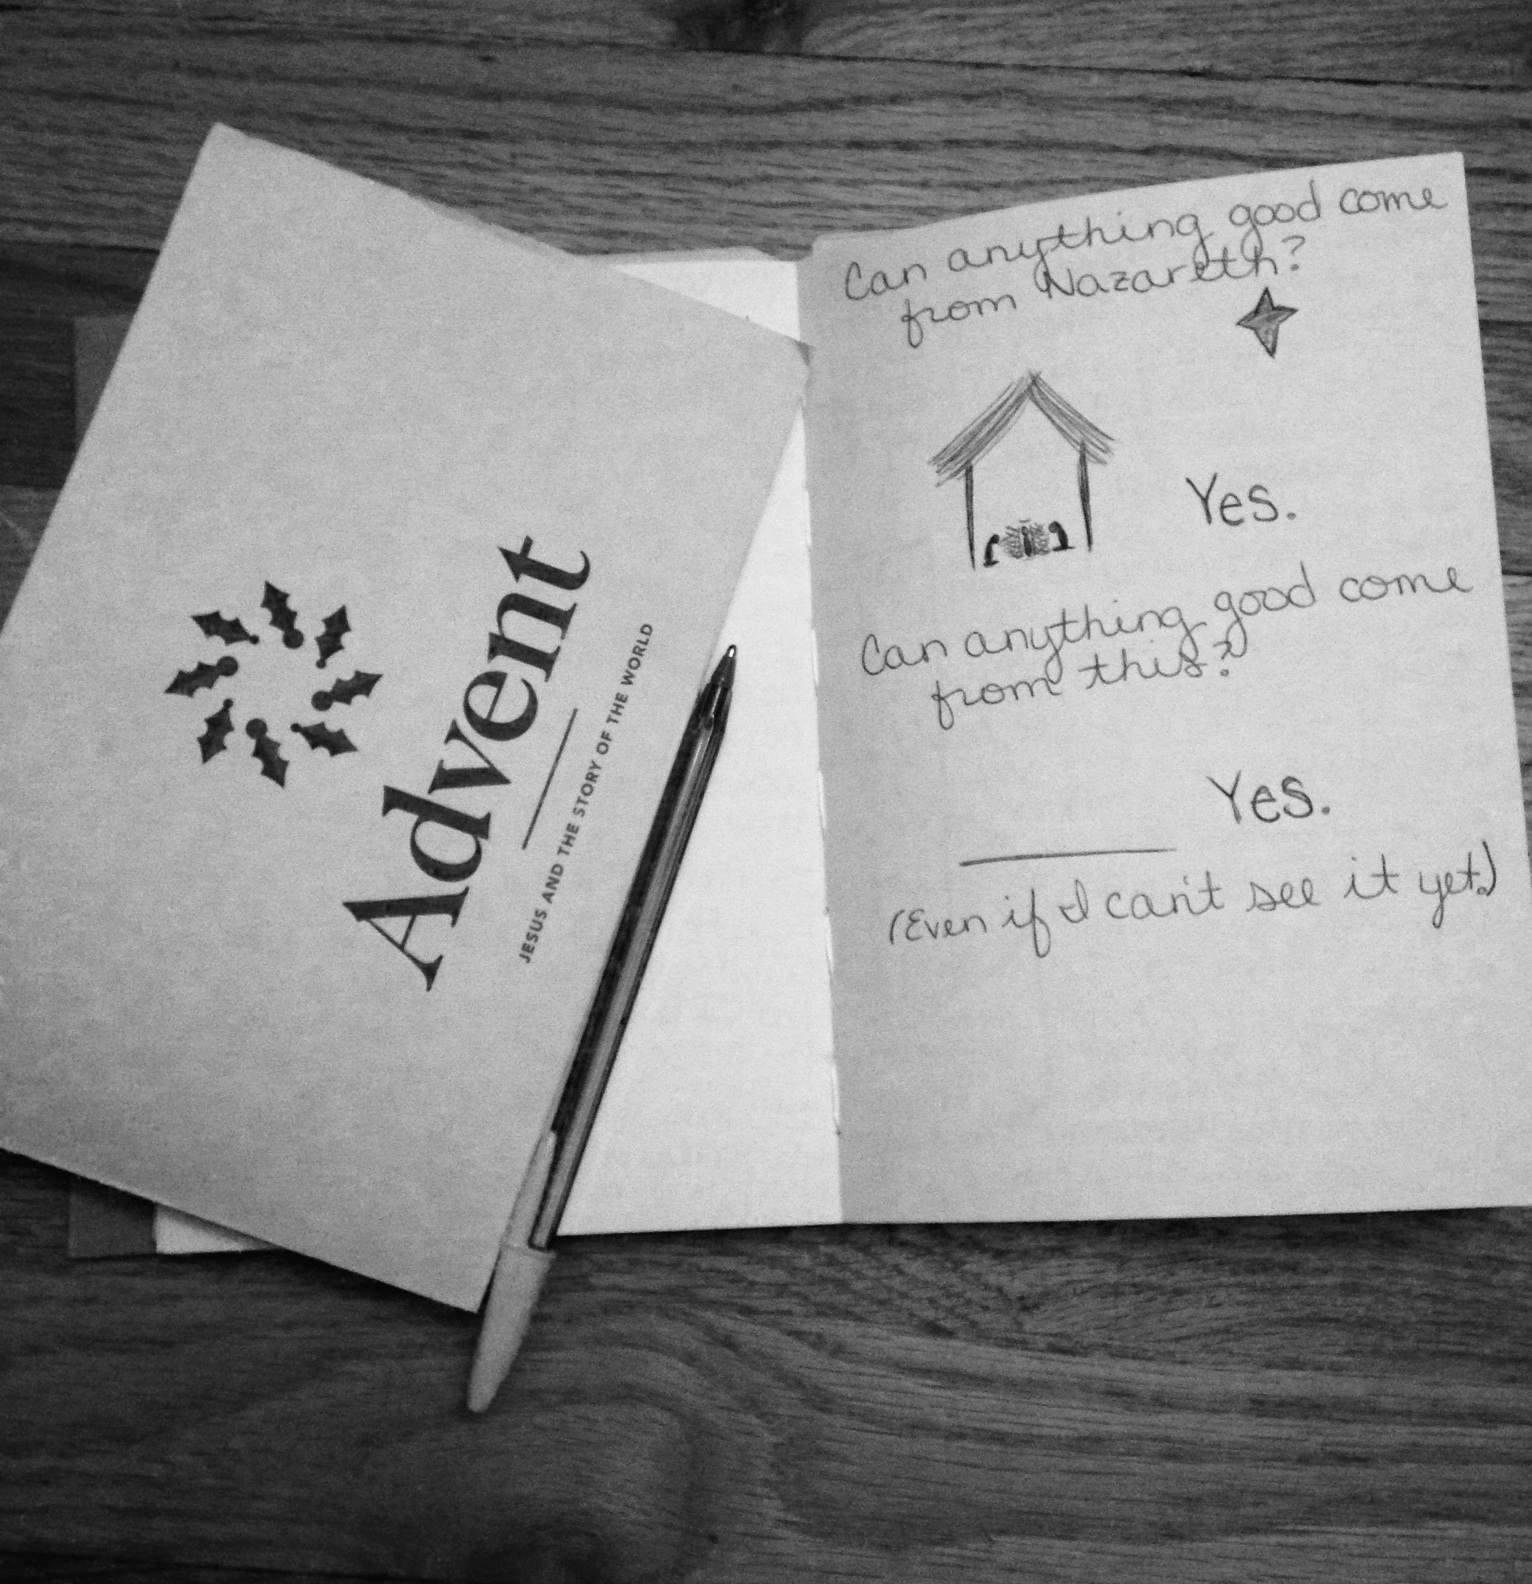 Advent
JESUS AND THE STORY OF THE WORLD
Can anything good come
from Nazareth?
Yes.
Can anything good come
from this?
Yes.
(Even if I can't see it yet.)